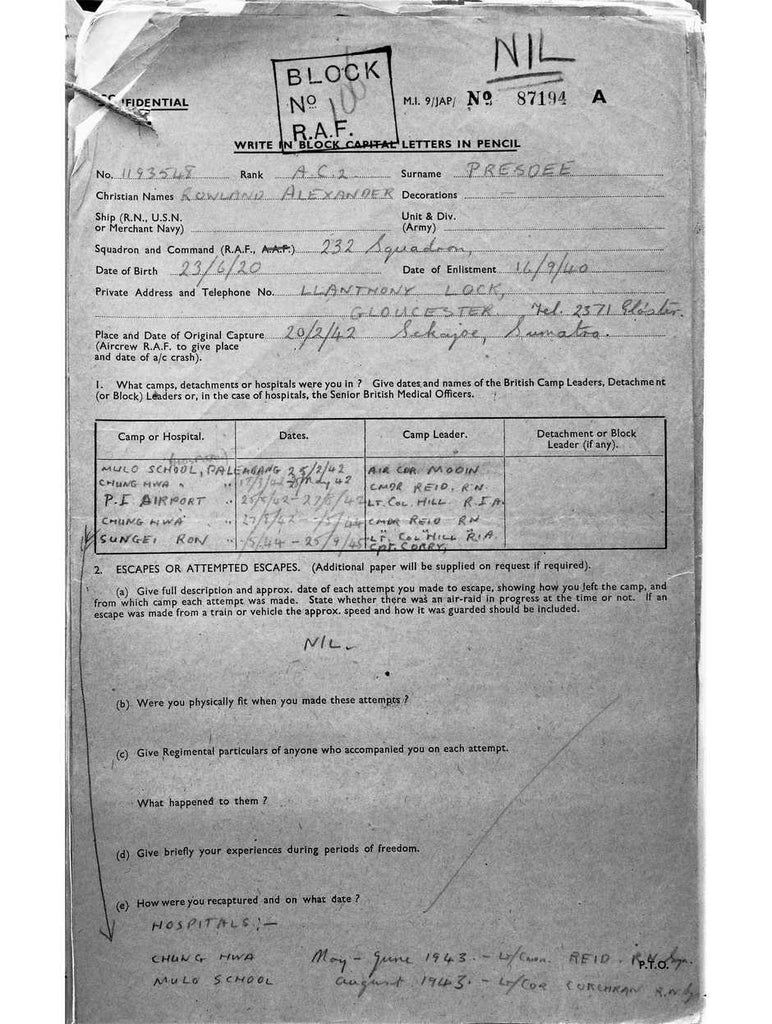 NIL
BLOCK
No
R.A.F.
FIDENTIAL
M.I. 9/JAP/ No 87194 A
WRITE IN BLOCK CAPITAL LETTERS IN PENCIL
No. 1193548 Rank A.C.2 Surname PRESDEE
Christian Names ROWLAND ALEXANDER Decorations
Ship (R.N., U.S.N. or Merchant Navy) Unit & Div. (Army)
Squadron and Command (R.A.F., A.A.F.) 232 Squadron,
Date of Birth 23/6/20 Date of Enlistment 16/9/40
Private Address and Telephone No. LLANTHONY LOCK,
GLOUCESTER Tel. 2371 Gloster.
Place and Date of Original Capture 20/2/42 Sekajoe, Sumatra.
(Aircrew R.A.F. to give place
and date of a/c crash).
1. What camps, detachments or hospitals were you in ? Give dates and names of the British Camp Leaders, Detachment
(or Block) Leaders or, in the case of hospitals, the Senior British Medical Officers.
Camp or Hospital. Dates. Camp Leader. Detachment or Block Leader (if any).
MULO SCHOOL, PALEMBANG 25/2/42 AIR CDR MODIN
CHUNG HWA " " CMDR REID, R.N.
P.I AIRPORT " " LT. COL. HILL R.I.A.
CHUNG HWA " " CMDR REID RN
SUNGEI RON " " /5/44 - 25/9/45 LT. COL HILL R.I.A
CPT. CORRY,
2. ESCAPES OR ATTEMPTED ESCAPES. (Additional paper will be supplied on request if required).
(a) Give full description and approx. date of each attempt you made to escape, showing how you left the camp, and
from which camp each attempt was made. State whether there was an air-raid in progress at the time or not. If an
escape was made from a train or vehicle the approx. speed and how it was guarded should be included.
NIL.
(b) Were you physically fit when you made these attempts ?
(c) Give Regimental particulars of anyone who accompanied you on each attempt.
What happened to them ?
(d) Give briefly your experiences during periods of freedom.
(e) How were you recaptured and on what date ?
HOSPITALS :-
CHUNG HWA May - June 1943. - REID. R.N
P.T.O.
MULO SCHOOL August 1943. - R.N